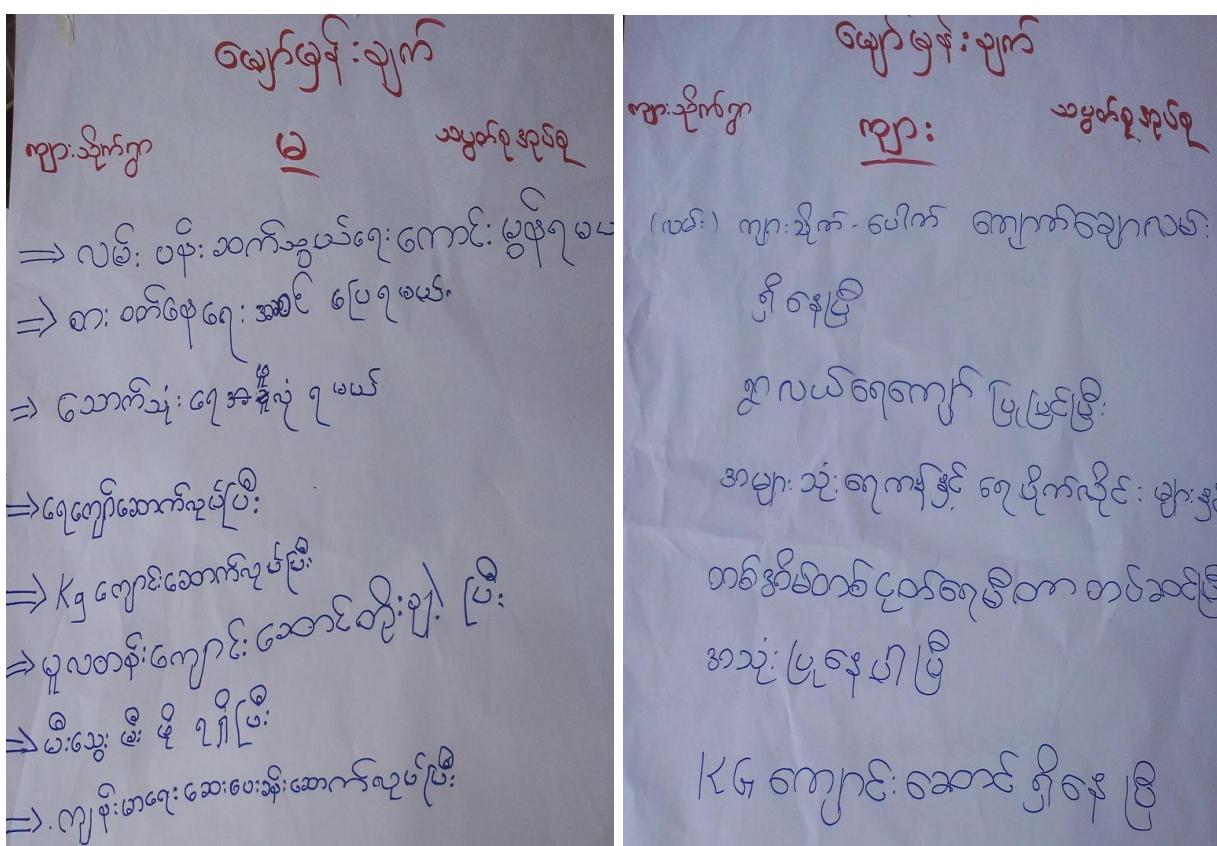 မျှော်မှန်းချက်
ကျားသိုက်ရွာ မ သမ္ဗတ်စုအုပ်စု
⇒ လမ်း ပန်း ဆက်သွယ်ရေး ကောင်း မွန်ရမယ်
⇒ စား ဝတ်နေ ရေး အဆင် ပြေ ရမယ်
⇒ သောက်သုံး ရေ အဖို့ လုံ ရ မယ်
⇒ ရေကျော်ဆောက်လုပ်ပြီး
⇒ Kg ကျောင်းဆောက်လုပ်ပြီး
⇒ မူလတန်းကျောင်း ဆောင်တိုးချဲ့ ပြီး
⇒ မီးသွေး မီး ဖို ရရှိပြီး
⇒ ကျန်းမာရေး ဆေးပေးခန်းဆောက်လုပ်ပြီး
မျှော်မှန်းချက်
ကျားသိုက်ရွာ ကျား သမ္ဗတ်စုအုပ်စု
(လမ်း) ကျားသိုက် - ပေါက် ကျောက်ချောလမ်း
ရှိ နေပြီ
ရွာလယ်ရေကျော် ပြုပြင်ပြီး
အများသုံးရေကန်နှင့် ရေပိုက်လိုင်း များနှင့်
တစ်အိမ်တစ်ငုတ်ရေမီတာ တပ်ဆင်ပြီး
အသုံးပြုနေပါပြီ
KG ကျောင်းဆောင် ရှိနေ ပြီ